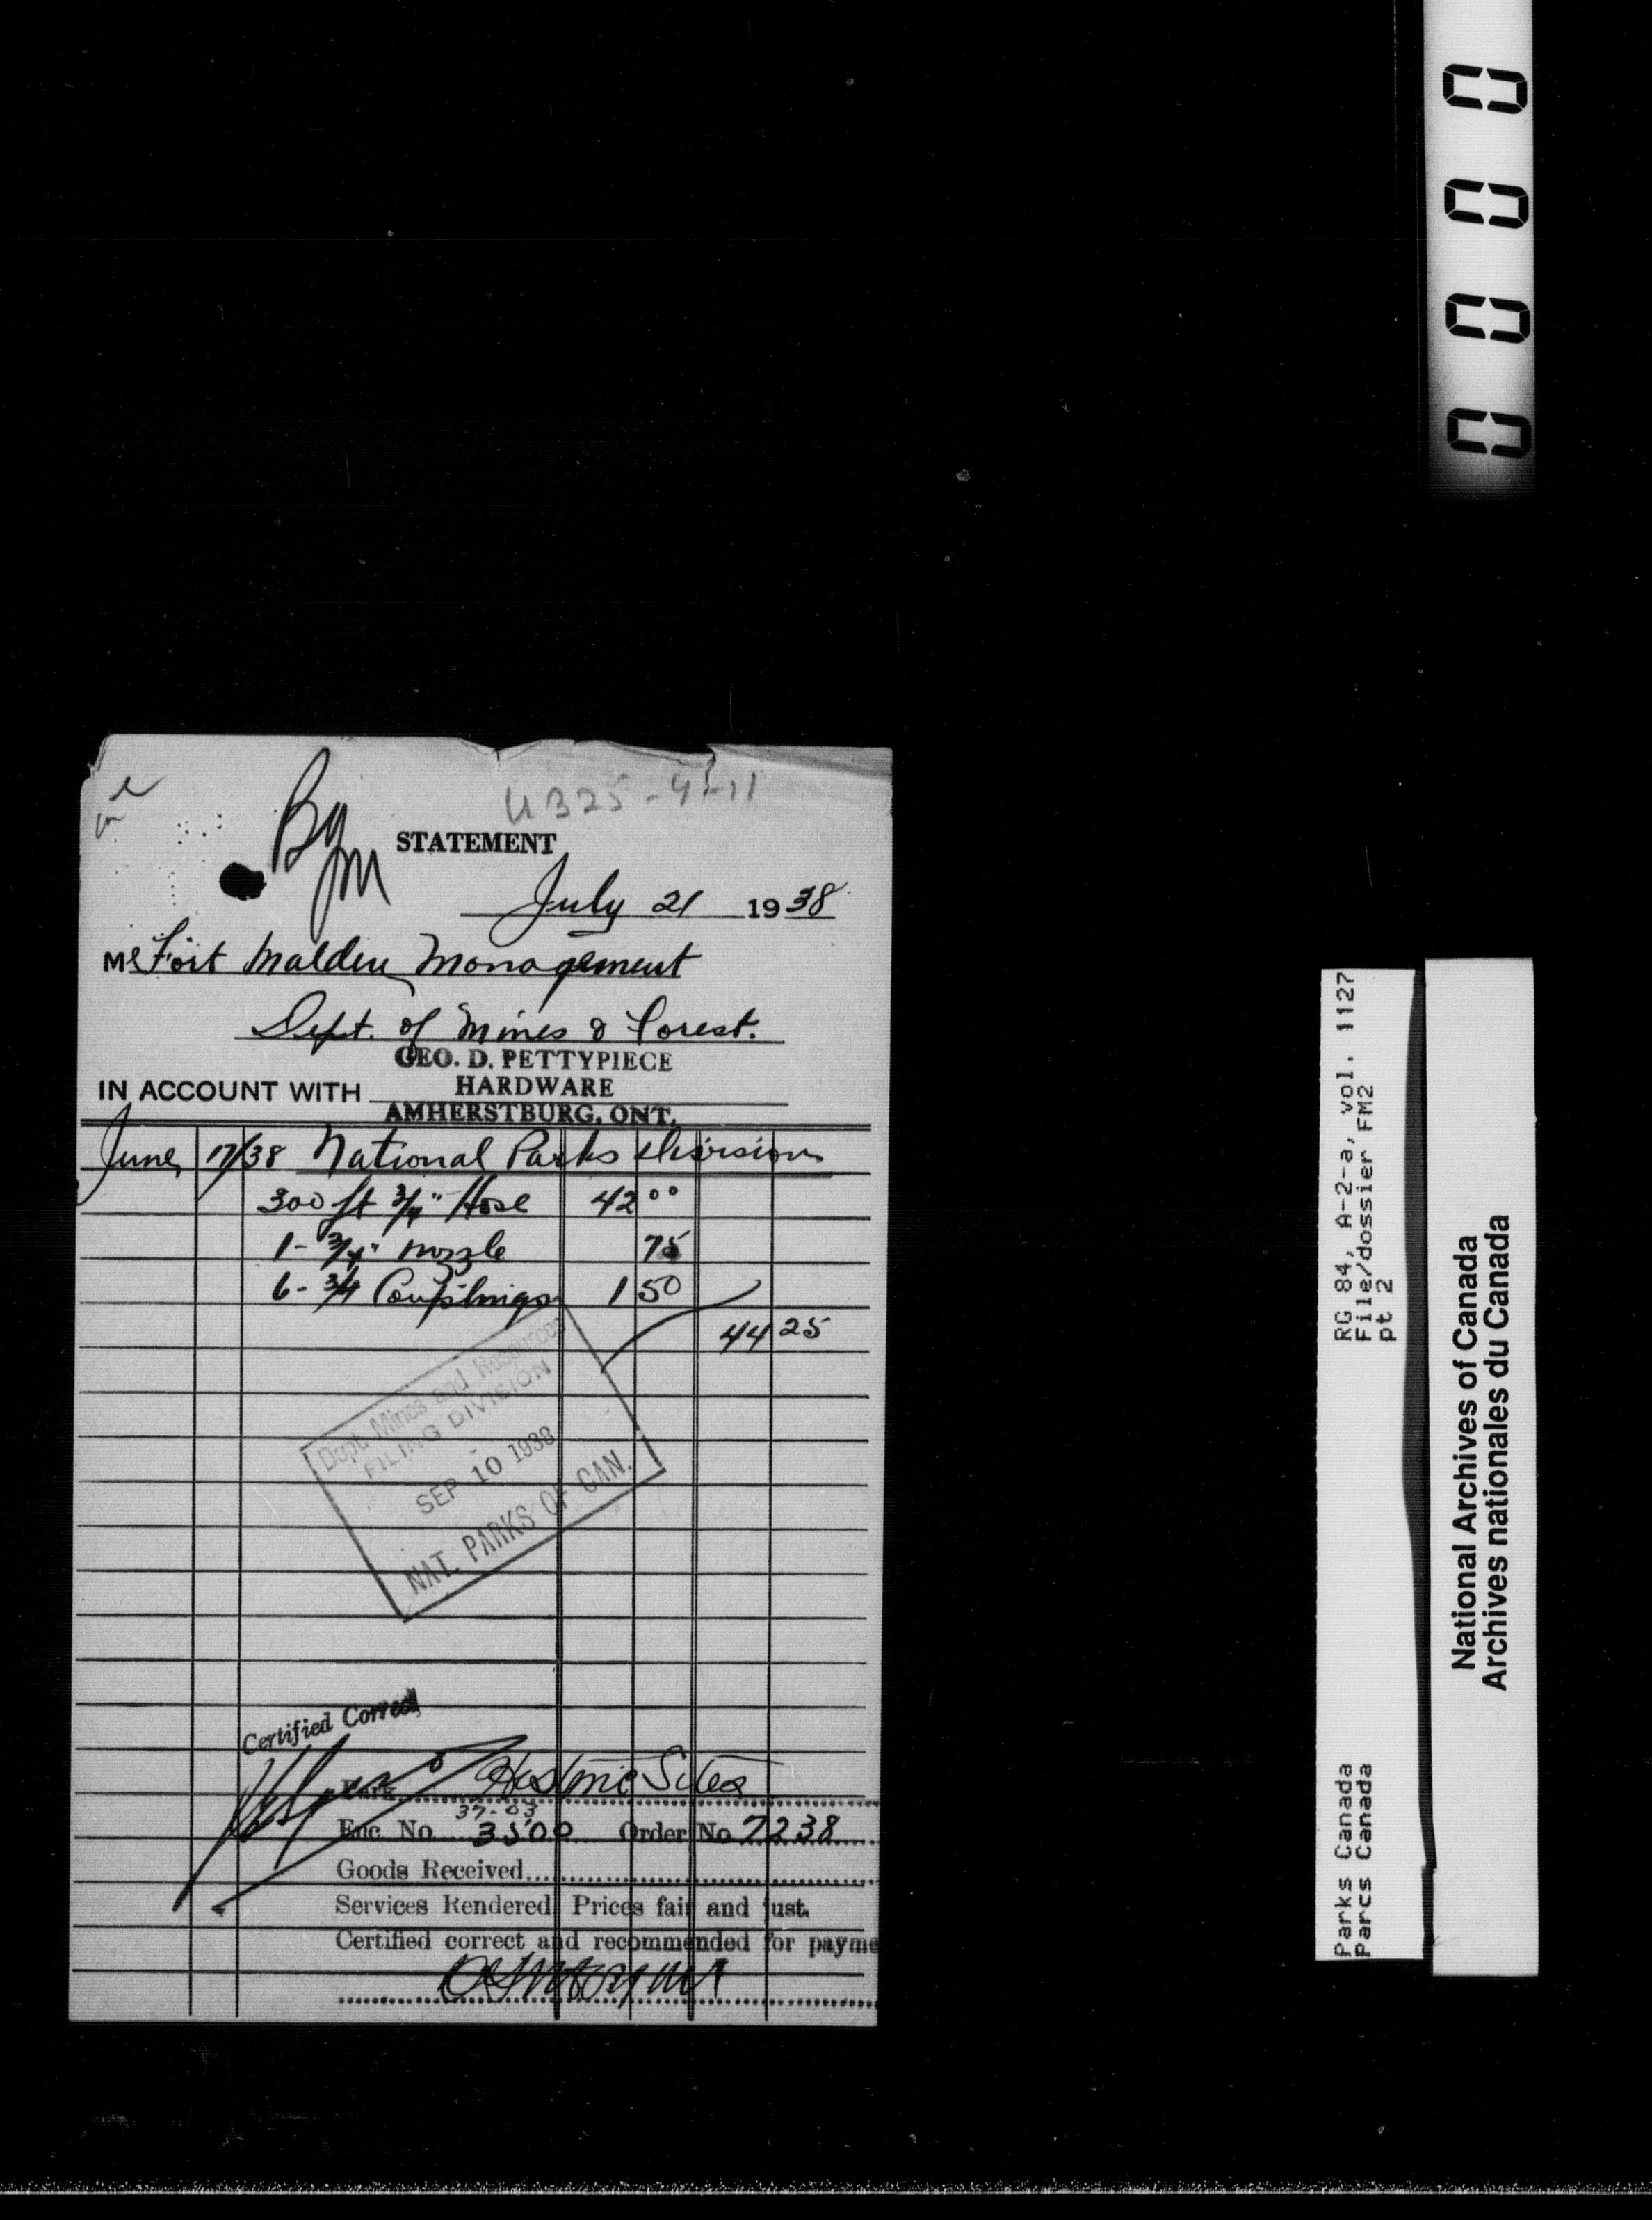 U325-4-11
STATEMENT
July 21 1938
Fort Malden Management
Dept. of Mines & Forest.
GEO. D. PETTYPIECE
HARDWARE
AMHERSTBURG, ONT.
IN ACCOUNT WITH
June 17/38 National Parks Division
300 ft 3/4" Hose 42 00
1 - 3/4" nozzle 75
6 - 3/4 Couplings 1 50
44 25
Dept. Mines and Resources
FILING DIVISION
SEP 10 1938
NAT. PARKS OF CAN.
Certified Correct
Park Historic Sites
37-03
Enc. No. 3500 Order No 7238
Goods Received
Services Rendered Prices fair and just.
Certified correct and recommended for payme
0000
RG 84, A-2-a, vol. 1127
File/dossier FM2
pt 2
Parks Canada
Parcs Canada
National Archives of Canada
Archives nationales du Canada